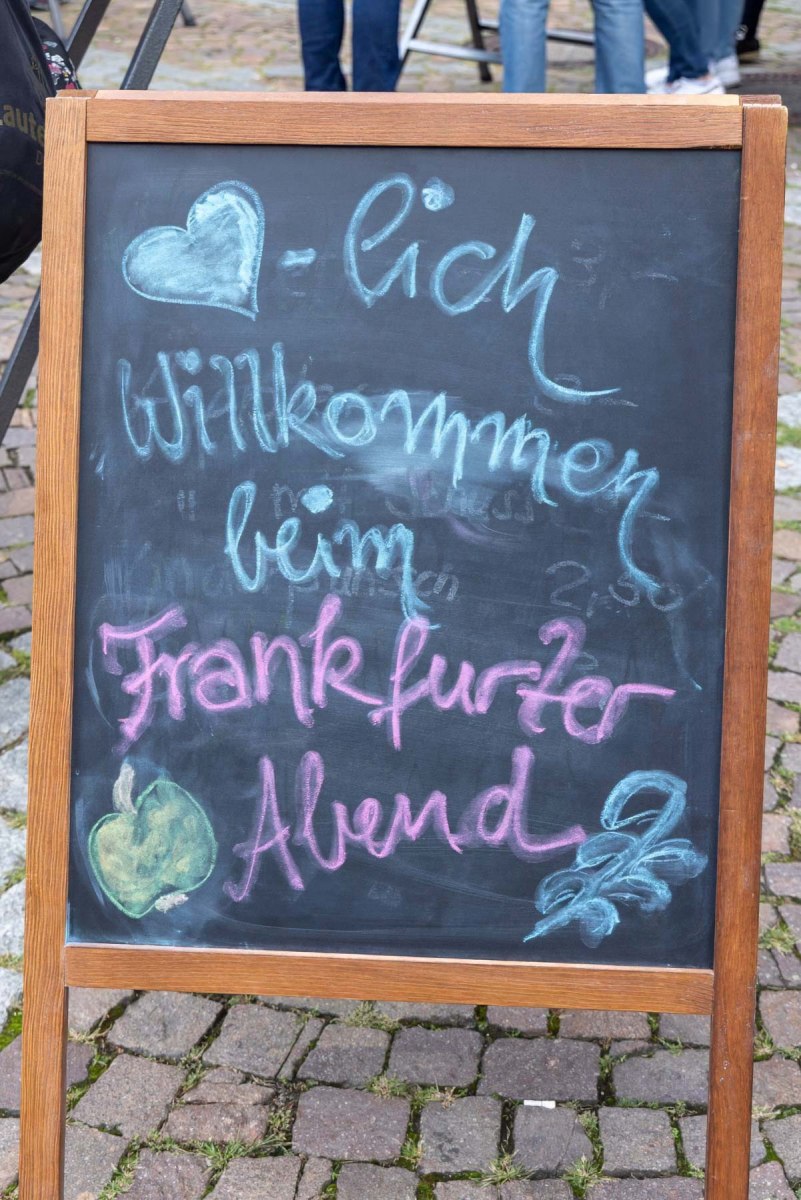 -lich
Willkommen
beim
Frankfurter
Abend